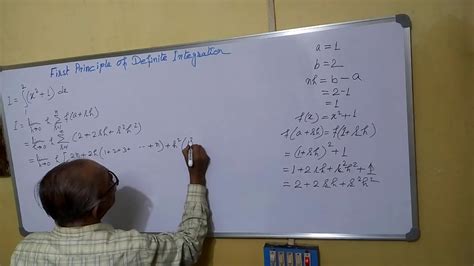 First Principle of Definite Integration
I = ∫₁² (x²+1) dx
I = Lim h→0 h Σ f(a+rh)
= Lim h→0 h Σ (2+2rh+r²h²)
= Lim h→0 h [2n+2h(1+2+3+ ... +n)+h²(1²
a = 1
b = 2
nh = b-a
= 2-1
= 1
f(x) = x²+1
f(a+rh) = f(1+rh)
= (1+rh)²+1
= 1+2rh+r²h²+1
= 2+2rh+r²h²